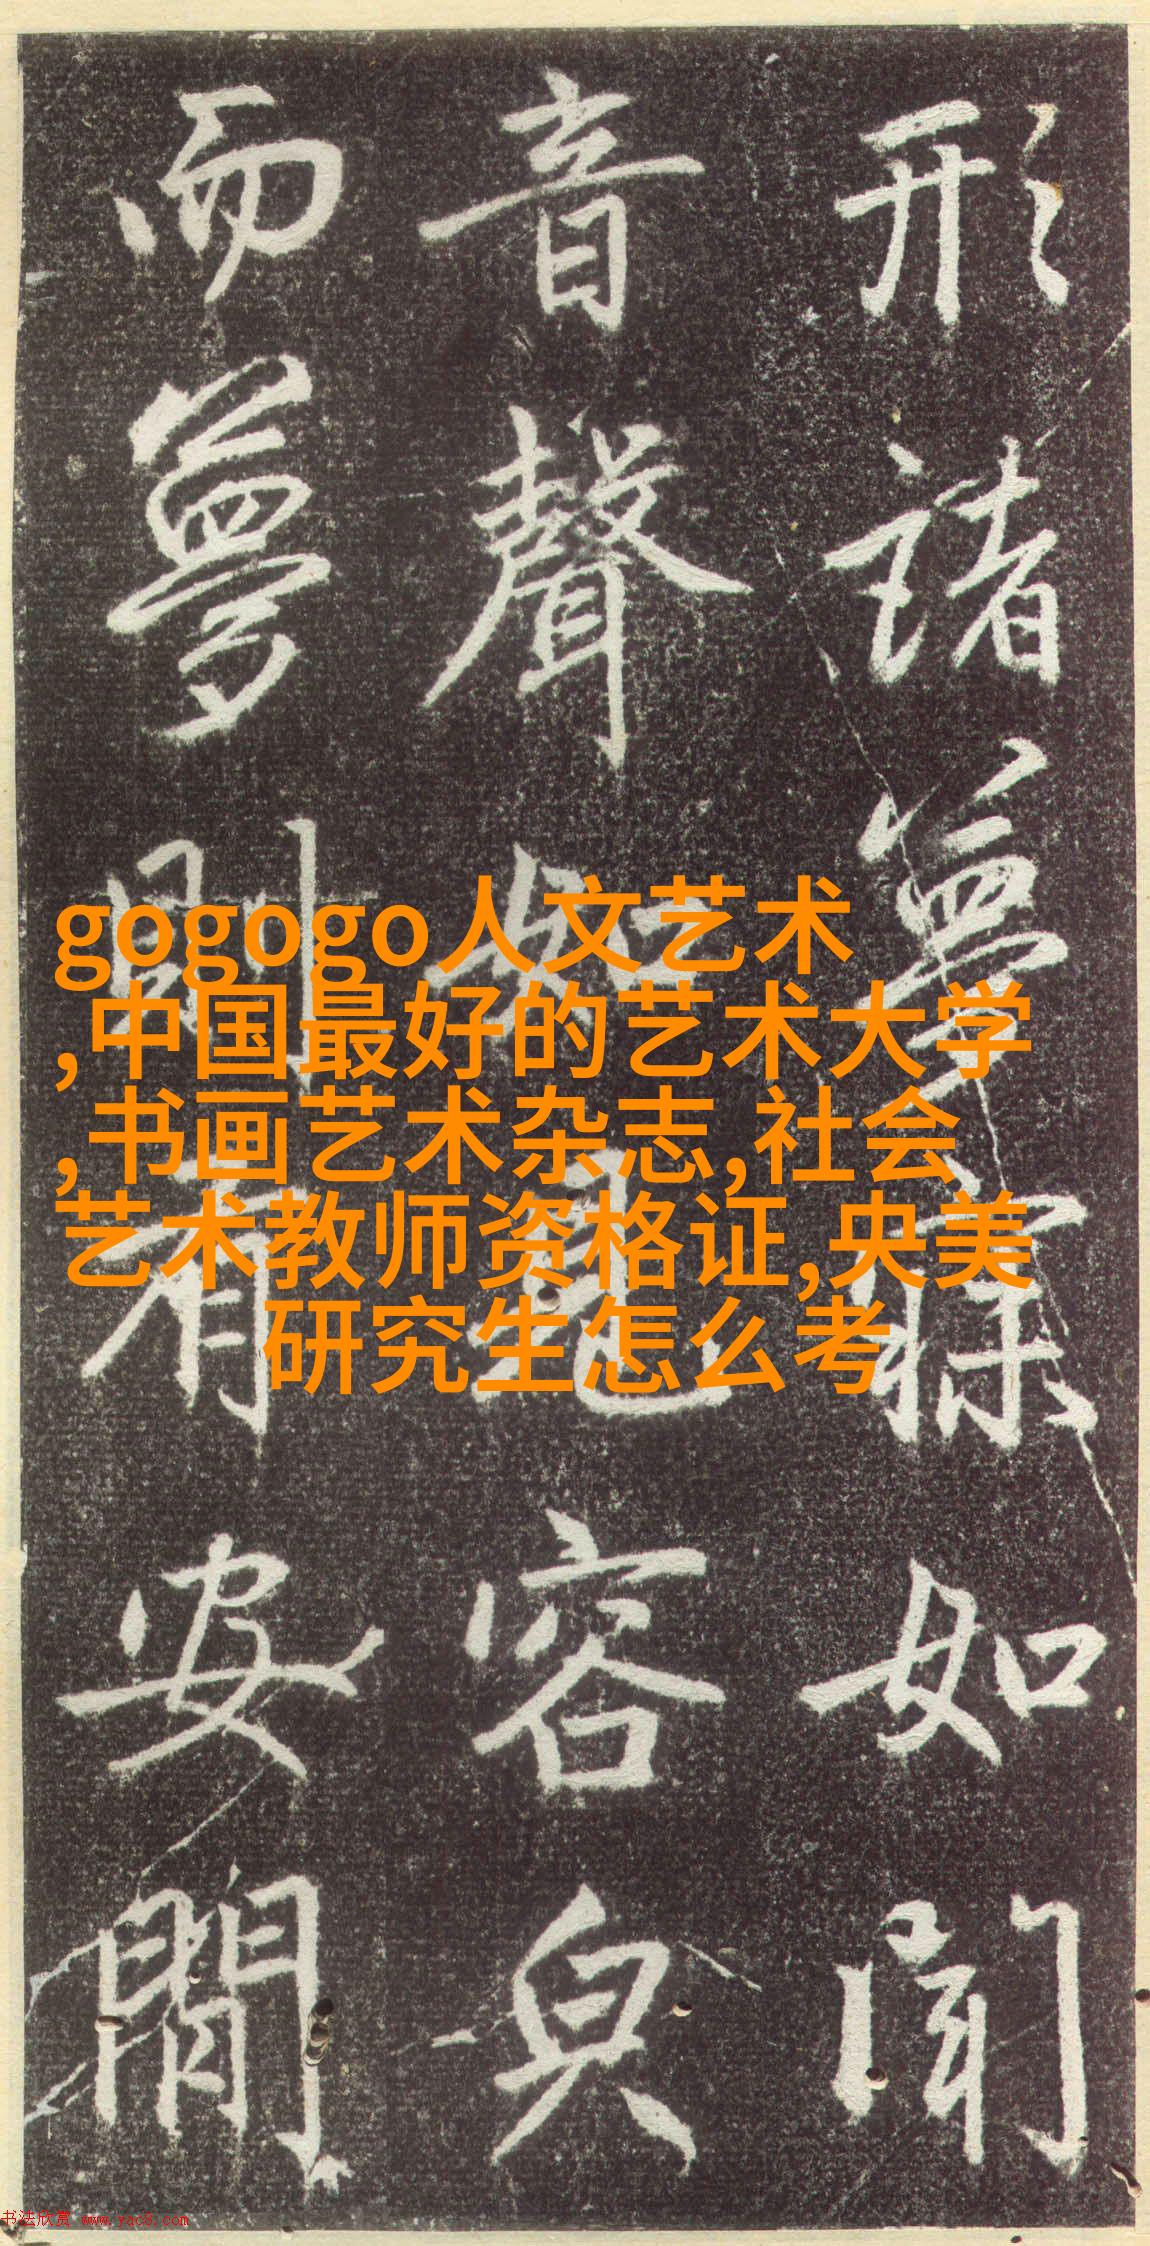 形諸夢寐如聞
音聲如見容皃
而夢則有安閒
gogogo人文艺术
,中国最好的艺术大学
,书画艺术杂志,社会
艺术教师资格证,央美
研究生怎么考
书法欣赏 www.yac8.com